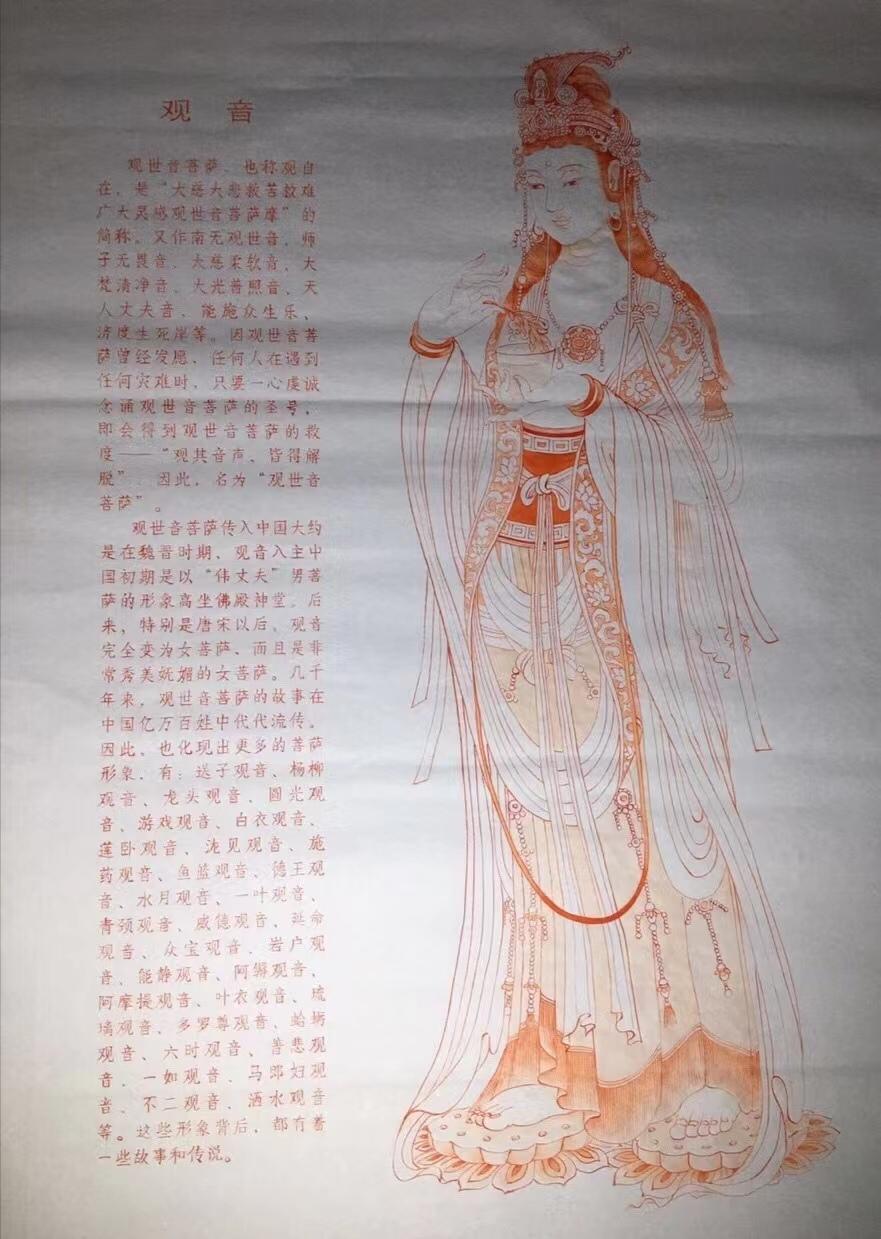 观 音
观世音菩萨、也称观自
在，是“大慈大悲救苦救难
广大灵感观世音菩萨摩”的
简称。又作南无观世音、师
子无畏音、大慈柔软音、大
梵清净音、大光普照音、天
人丈夫音、能施众生乐、
济度生死岸等。因观世音菩
萨曾经发愿、任何人在遇到
任何灾难时，只要一心虔诚
念诵观世音菩萨的圣号，
即会得到观世音菩萨的救
度——“观其音声、皆得解
脱”，因此，名为“观世音
菩萨”。
观世音菩萨传入中国大约
是在魏晋时期、观音入主中
国初期是以“伟丈夫”男菩
萨的形象高坐佛殿神堂。后
来，特别是唐宋以后，观音
完全变为女菩萨、而且是非
常秀美妩媚的女菩萨。几千
年来，观世音菩萨的故事在
中国亿万百姓中代代流传。
因此、也化现出更多的菩萨
形象，有：送子观音、杨柳
观音、龙头观音、圆光观
音、游戏观音、白衣观音、
莲卧观音、泷见观音、施
药观音、鱼篮观音、德王观
音、水月观音、一叶观音、
青颈观音、威德观音、延命
观音、众宝观音、岩户观
音、能静观音、阿耨观音、
阿摩提观音、叶衣观音、琉
璃观音、多罗尊观音、蛤蜊
观音、六时观音、普悲观
音、一如观音、马郎妇观
音、不二观音、洒水观音
等。这些形象背后，都有着
一些故事和传说。